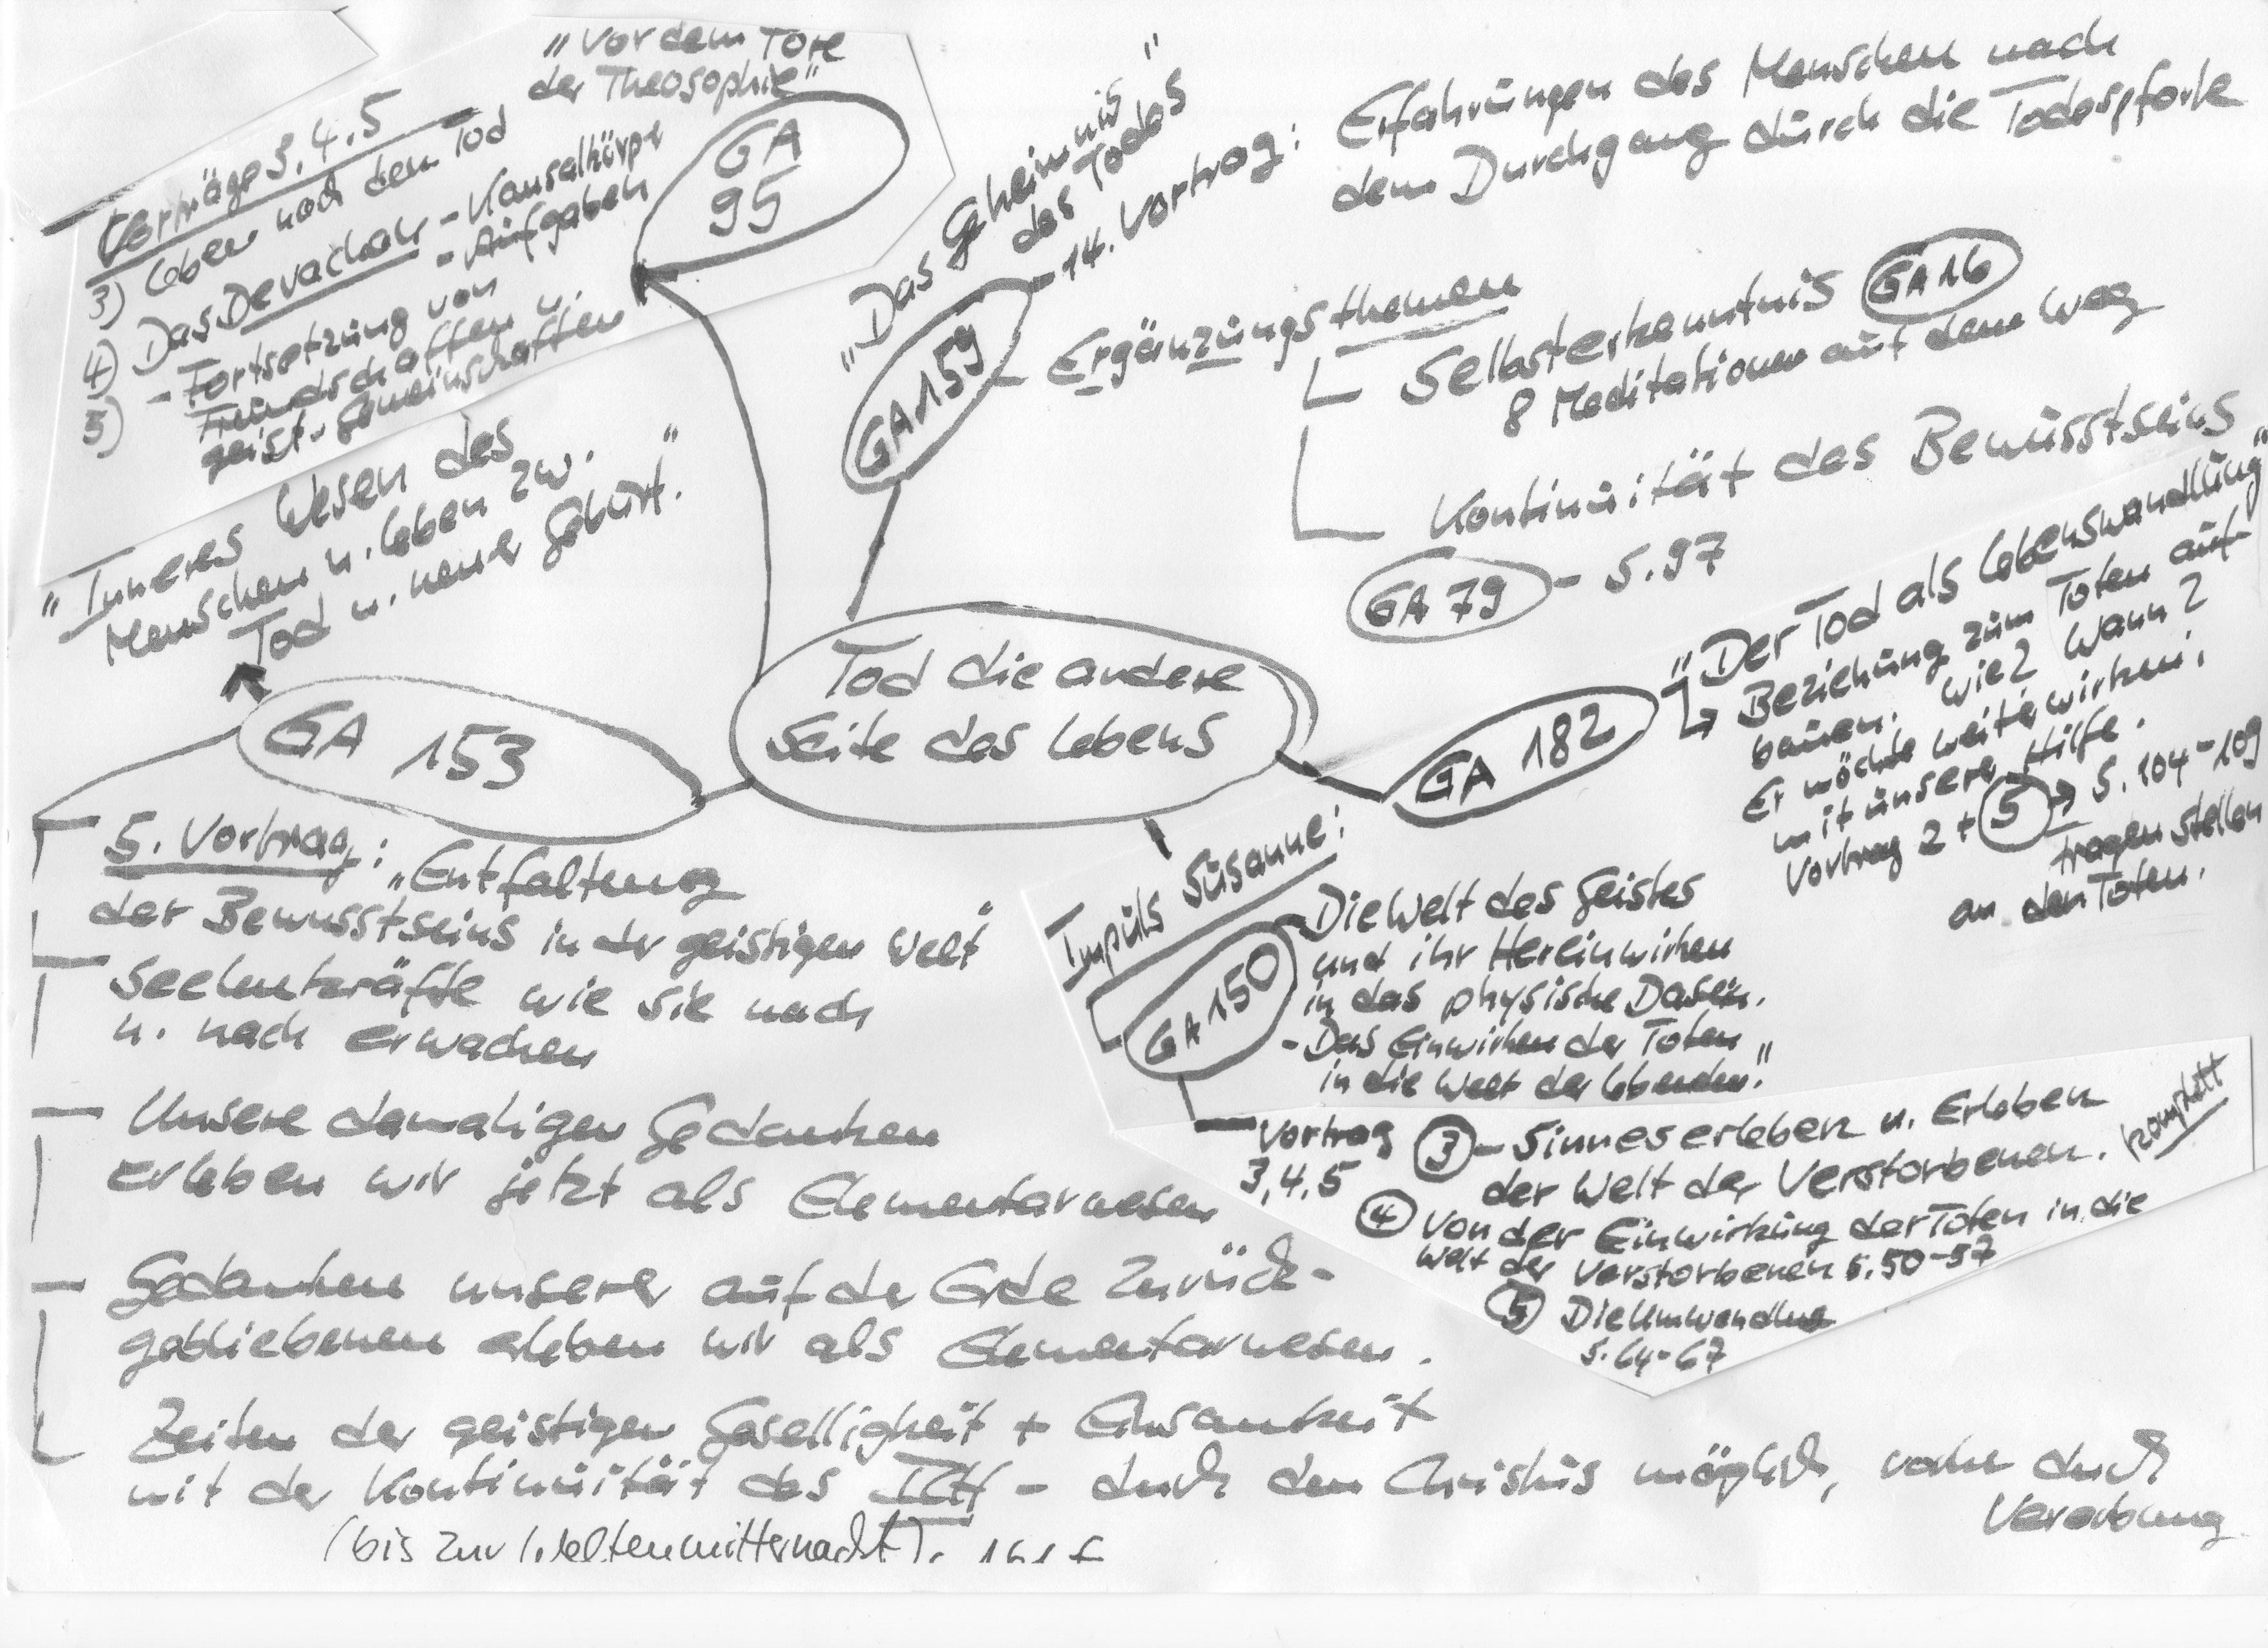 „Vor dem Tore
der Theosophie"
GA
95
Vorträge 3.4.5
3) Leben nach dem Tod
4) Das Devachan - Kausalkörper
- Aufgaben
5) - Fortsetzung von
Freundschaften u.
geist. Gemeinschaften
„Das Geheimnis
des Todes"
GA 159
- 14. Vortrag: Erfahrungen des Menschen nach
dem Durchgang durch die Todespforte
- Ergänzungsthemen
Selbsterkenntnis GA 16
8 Meditationen auf dem Weg
Kontinuität des Bewusstseins
GA 79 - S. 97
Tod die andere
Seite des Lebens
„Inneres Wesen des
Menschen u. Leben zw.
Tod u. neuer Geburt."
GA 153
5. Vortrag: „Entfaltung
der Bewusstseins in der geistigen Welt"
Seelenkräfte wie sie nach
u. nach erwachen
Unsere damaligen Gedanken
erleben wir jetzt als Elementarwesen
Gedanken unserer auf der Erde Zurück-
gebliebenen erleben wir als Elementarwesen.
Zeiten der geistigen Geselligkeit + Einsamkeit
mit der Kontinuität des ICH - durch den Christus möglich, vorher durch
Vererbung
(bis zur Weltenmitternacht).
GA 182
„Der Tod als Lebenswandlung"
Beziehung zum Toten auf-
bauen. Wie? Wann?
Er möchte weiterwirken,
mit unserer Hilfe.
Vortrag 2 + 5 → S. 104-109
Fragen stellen
an den Toten.
Impuls Susanne:
GA 150
Die Welt des Geistes
und ihr Hereinwirken
in das physische Dasein.
- Das Einwirken der Toten
in die Welt der Lebenden."
Vortrag
3,4,5
3 - Sinneserleben u. Erleben
der Welt der Verstorbenen. komplett
4 Von der Einwirkung der Toten in die
Welt der Verstorbenen S. 50-57
5 Die Umwendung
S. 64-67